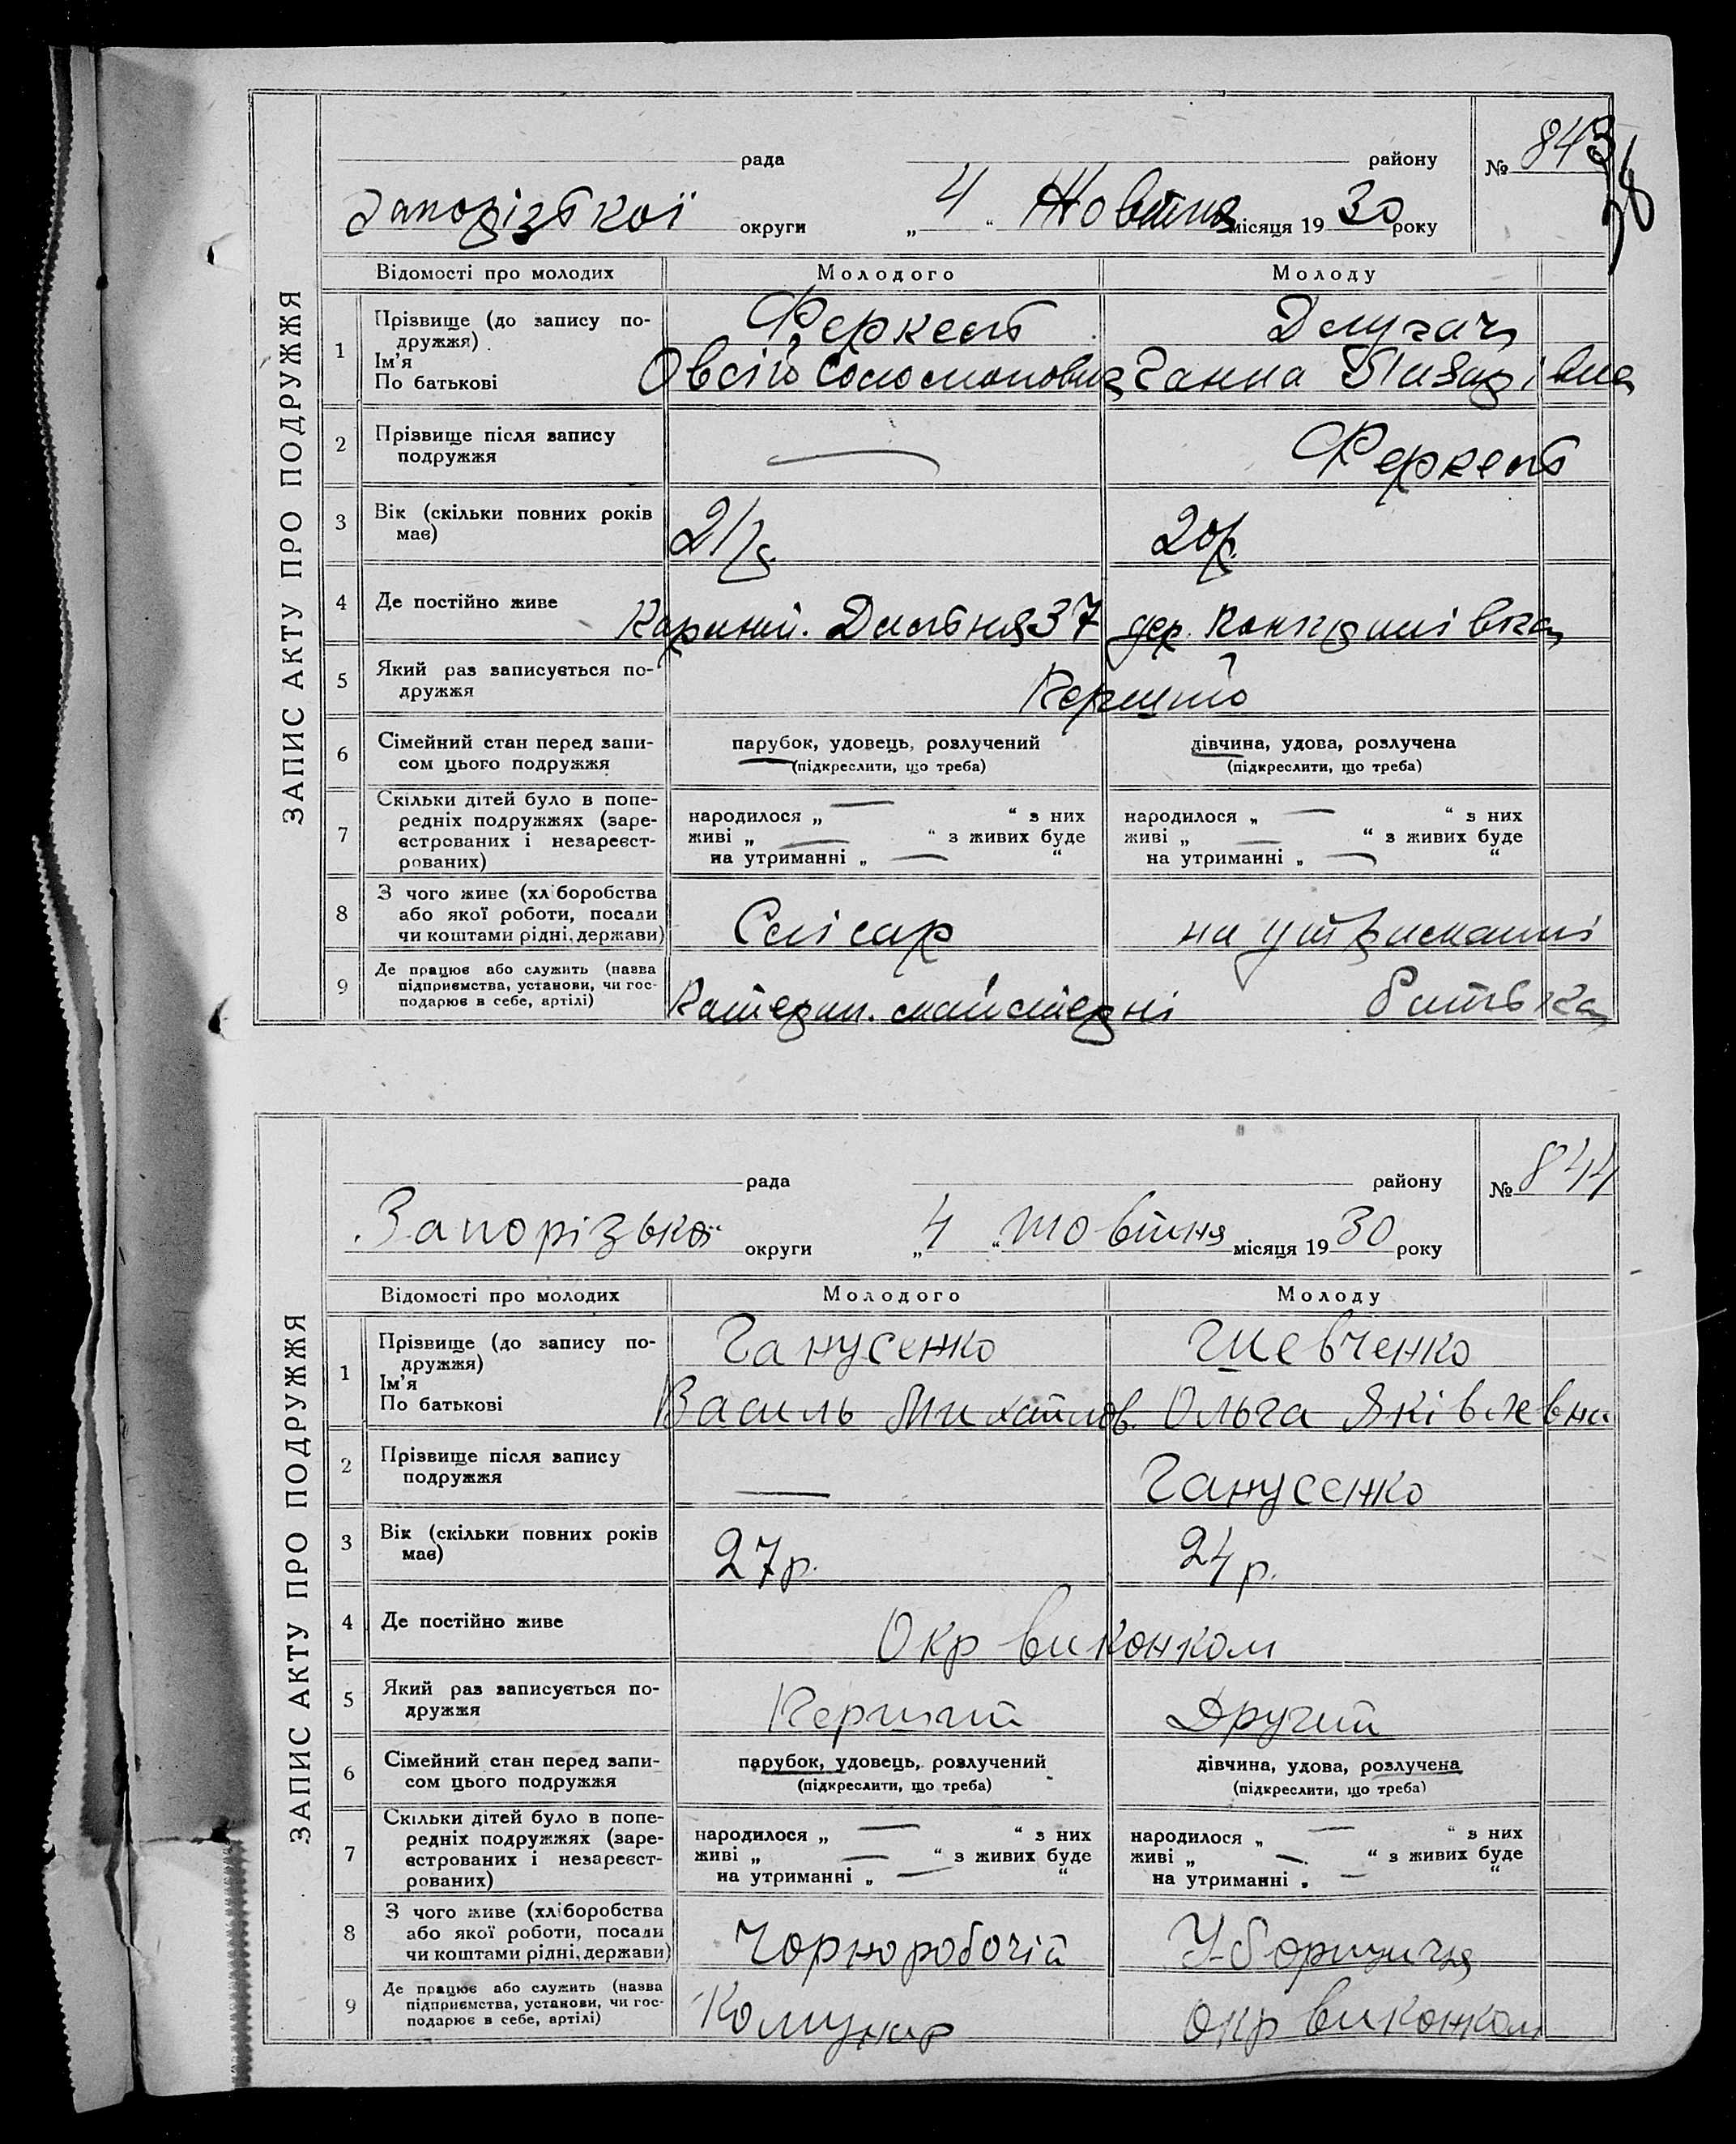 ЗАПИС АКТУ ПРО ПОДРУЖЖЯ
рада району № 843
38
Запорізької округи „ 4 “ Жовтня місяця 1930 року
Відомості про молодих Молодого Молоду
1 Прізвище (до запису подружжя) Феркель Длугач
Ім'я
По батькові Овсій Соломонович Ганна Лазарівна
2 Прізвище після запису подружжя — Феркель
3 Вік (скільки повних років має) 21р. 20р.
4 Де постійно живе Дальня 37 дер.
5 Який раз записується подружжя Перший
6 Сімейний стан перед записом цього подружжя парубок, удовець, розлучений дівчина, удова, розлучена
(підкреслити, що треба) (підкреслити, що треба)
7 Скільки дітей було в попередніх подружжях (зареєстрованих і незареєстрованих) народилося „ — “ з них народилося „ — “ з них
живі „ — “ з живих буде живі „ — “ з живих буде
на утриманні „ — “ на утриманні „ — “
8 З чого живе (хліборобства або якої роботи, посади чи коштами рідні, держави) Слісар на утриманні
9 Де працює або служить (назва підприємства, установи, чи господарює в себе, артілі) Катерин. майстерні батька
ЗАПИС АКТУ ПРО ПОДРУЖЖЯ
рада району № 844
Запорізької округи „ 4 “ Жовтня місяця 1930 року
Відомості про молодих Молодого Молоду
1 Прізвище (до запису подружжя) Ганусенко Шевченко
Ім'я
По батькові Василь Михайлов. Ольга Яківлевна
2 Прізвище після запису подружжя — Ганусенко
3 Вік (скільки повних років має) 27р. 24р.
4 Де постійно живе Окр виконком
5 Який раз записується подружжя Перший Другий
6 Сімейний стан перед записом цього подружжя парубок, удовець, розлучений дівчина, удова, розлучена
(підкреслити, що треба) (підкреслити, що треба)
7 Скільки дітей було в попередніх подружжях (зареєстрованих і незареєстрованих) народилося „ — “ з них народилося „ — “ з них
живі „ — “ з живих буде живі „ — “ з живих буде
на утриманні „ — “ на утриманні „ — “
8 З чого живе (хліборобства або якої роботи, посади чи коштами рідні, держави) Чорноробочій Уборщиця
9 Де працює або служить (назва підприємства, установи, чи господарює в себе, артілі) Комунар окр виконком